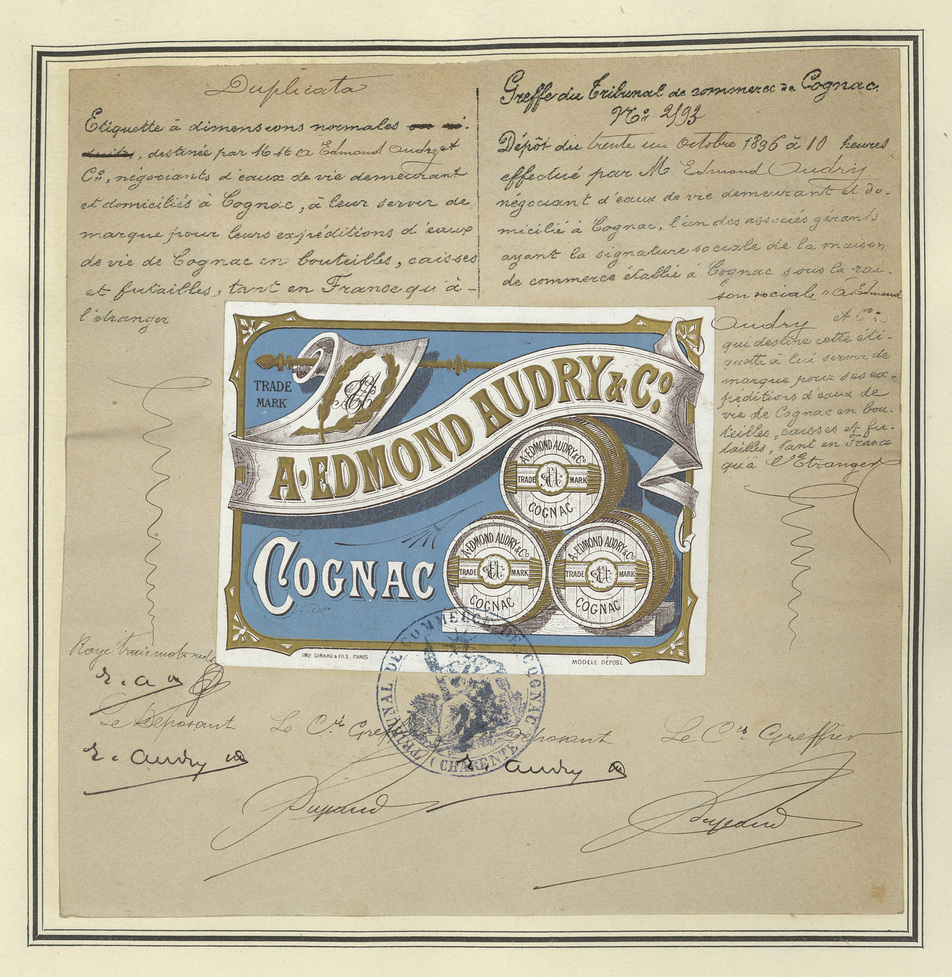 Duplicata
Etiquette à dimensions normales
, destinée par MM A Edmond Audry et
Cie, négociants d'eaux de vie demeurant
et domiciliés à Cognac, à leur servir de
marque pour leurs expéditions d'eaux
de vie de Cognac en bouteilles, caisses
et futailles, tant en France qu'à
l'étranger
Greffe du Tribunal de commerce de Cognac.
Dépôt du trente un Octobre 1896 à 10 heures
effectué par M Edmond Audry
négociant d'eaux de vie demeurant et do-
micilié à Cognac, l'un des associés gérants
ayant la signature sociale de la maison
de commerce établie à Cognac sous la rai-
son sociale "A Edmond
Audry et Cie
qui destine cette éti-
quette à lui servir de
marque pour ses ex-
péditions d'eaux de
vie de Cognac en bou-
teilles, caisses et fu-
tailles, tant en France
qu'à l'Etranger
TRADE
MARK
A. EDMOND AUDRY & Co.
COGNAC
A. EDMOND AUDRY & Co
TRADE MARK
COGNAC
A. EDMOND AUDRY & Co
TRADE MARK
COGNAC
A. EDMOND AUDRY & Co
TRADE MARK
COGNAC
IMP. GIRARD & FILS, PARIS
MODÈLE DÉPOSÉ
TRIBUNAL DE COMMERCE DE COGNAC
(CHARENTE)
Rayé trois mots nuls
Le Déposant
Le Cis Greffier
Le Déposant
Le Cis Greffier
E. Audry
E. Audry